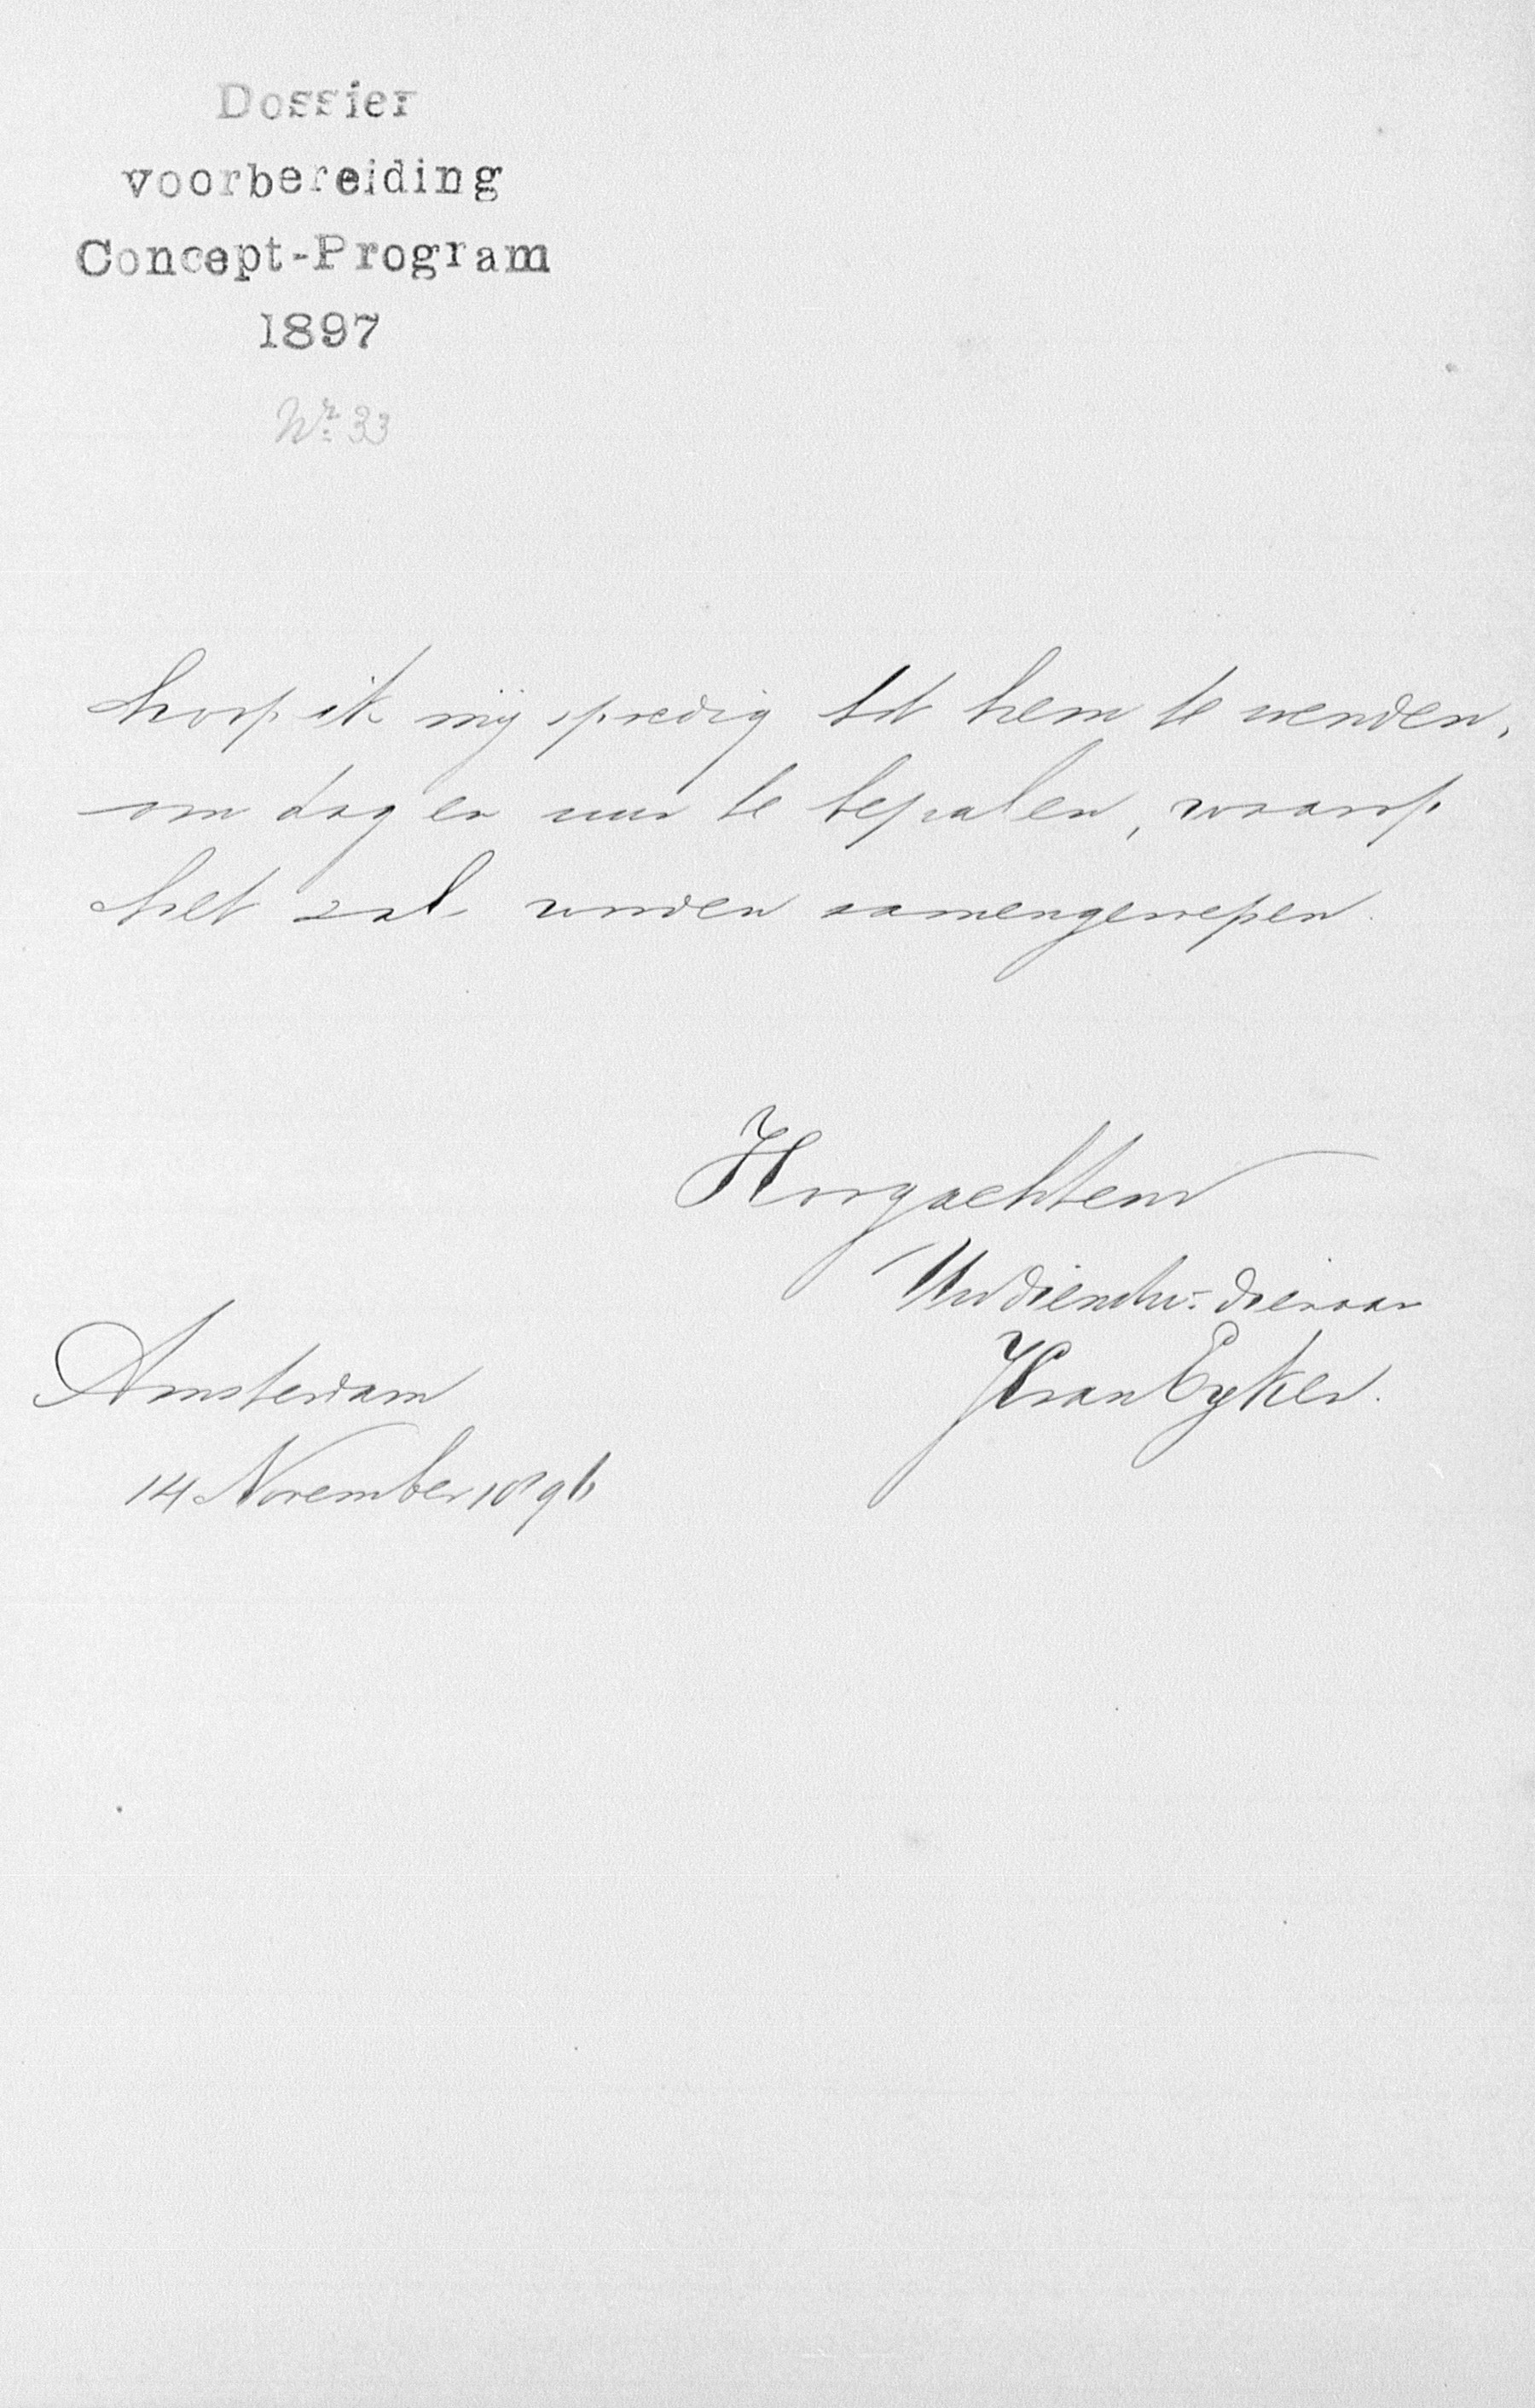 Dossier
voorbereiding
Concept-Program
1897
Nr. 33
hoop ik mij spoedig tot hem te wenden,
om dag en uur te bepalen, waarop
het zal worden samengeroepen.
Hoogachtend
Uw dienstw. dienaar
HvanEyken.
Amsterdam
14 November 1896